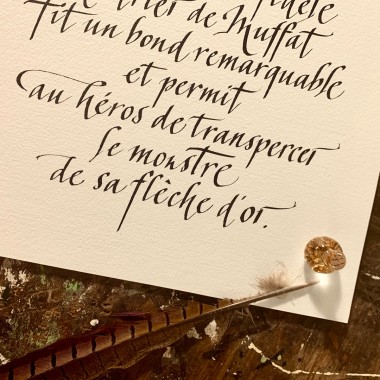 fidèle
de Muffat
fit un bond remarquable
et permit
au héros de transpercer
le monstre
de sa flèche d'or.